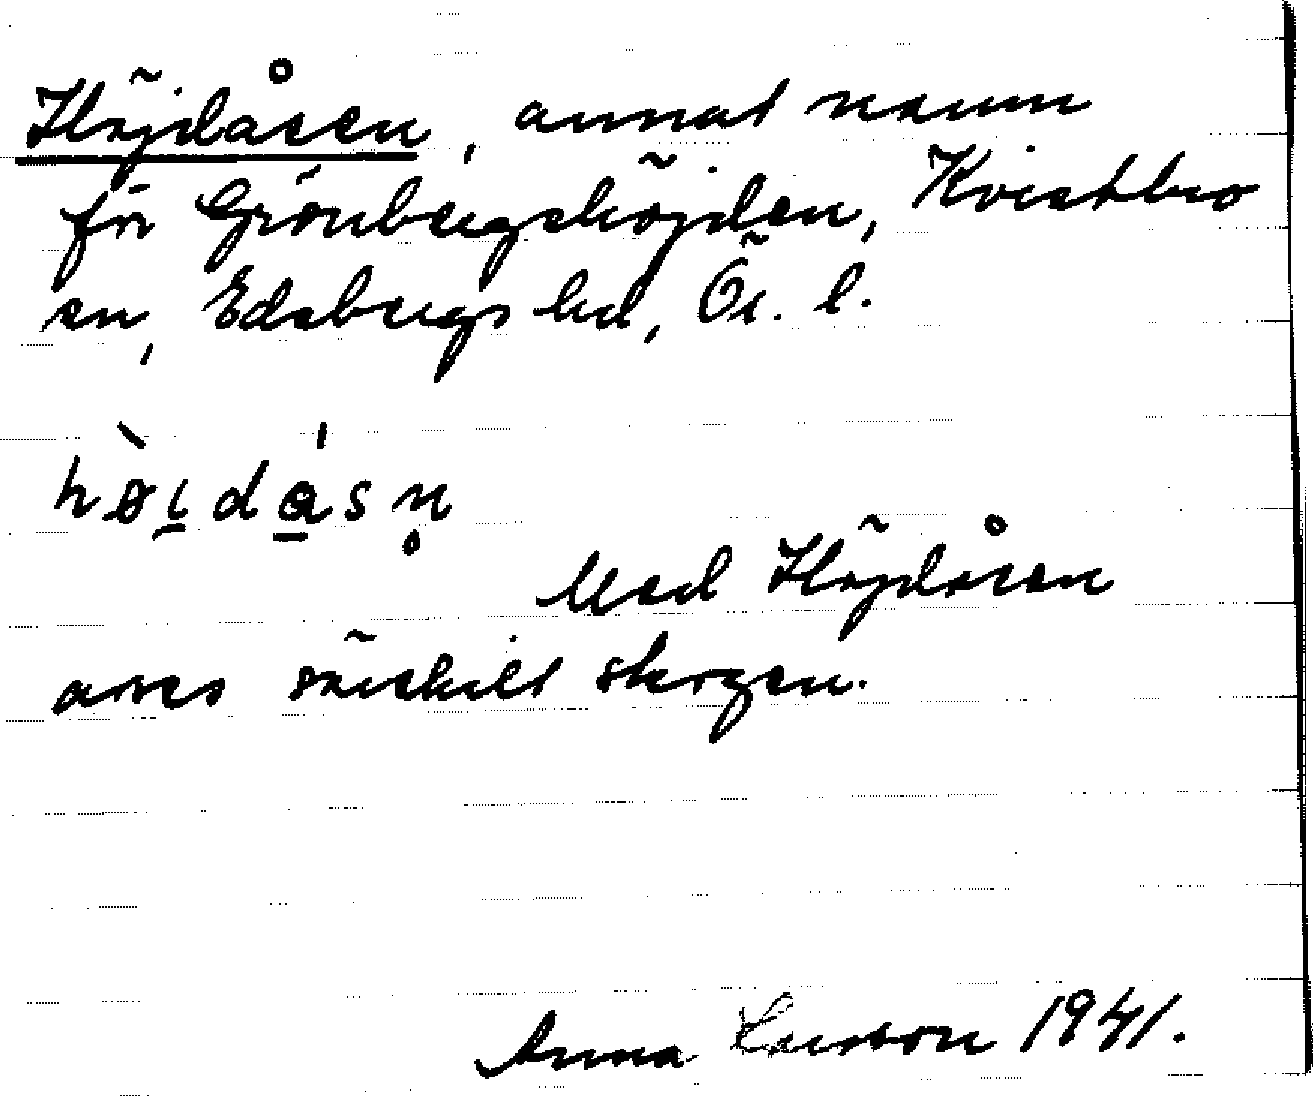 Höjdåsen, annat namn
för Grönbergshöjden, Kvistbro
sn, Edsbergs hd, Ör. l.
hø̀i̠dǻ̠sn̥
Med Höjdåsen
avses särskilt skogen.
Anna Larsson 1941.